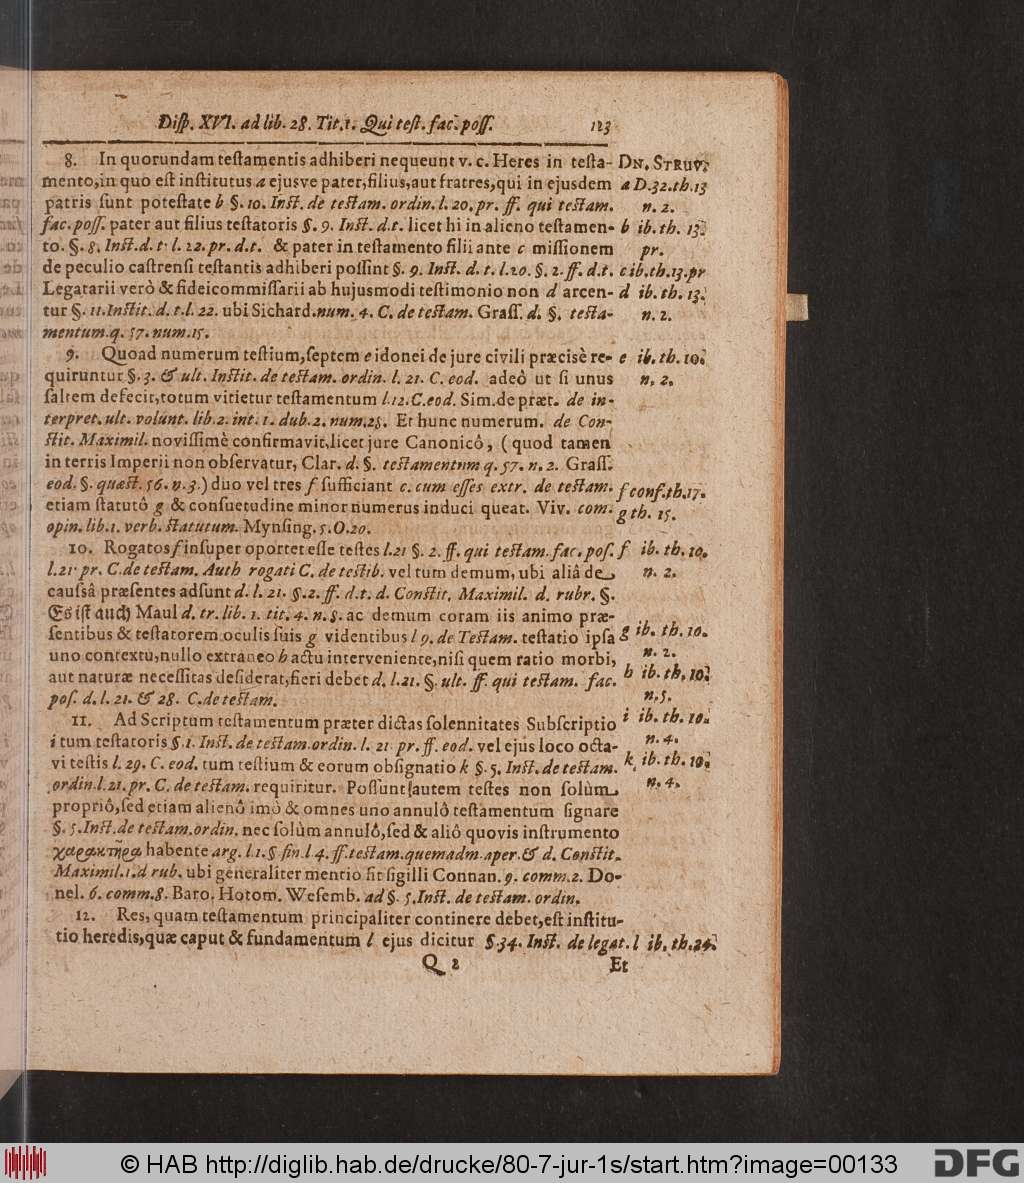 Diſp. XVI. ad lib. 28. Tit. 1. Qui teſt. fac. poſſ. 123
8. In quorundam teſtamentis adhiberi nequeunt v. c. Heres in teſta- DN. STRUV.
mento, in quo eſt inſtitutus a ejusve pater, filius, aut fratres, qui in ejusdem a D. 32. th. 13
patris ſunt poteſtate b §. 10. Inſt. de teſtam. ordin. l. 20. pr. ff. qui teſtam. n. 2.
fac. poſſ. pater aut filius teſtatoris §. 9. Inſt. d. t. licet hi in alieno teſtamen- b ib. th. 13.
to. §. 8. Inſt. d. t. l. 22. pr. d. t. & pater in teſtamento filii ante c miſſionem pr.
de peculio caſtrenſi teſtantis adhiberi poſſint §. 9. Inſt. d. t. l. 20. §. 2. ff. d. t. c ib. th. 13. pr
Legatarii verò & fideicommiſſarii ab hujusmodi teſtimonio non d arcen- d ib. th. 13.
tur §. 11. Inſtit. d. t. l. 22. ubi Sichard. num. 4. C. de teſtam. Graſſ. d. §. teſta- n. 2.
mentum. q. 57. num. 15.
9. Quoad numerum teſtium, ſeptem e idonei de jure civili præcisè re- e ib. th. 10.
quiruntur §. 3. & ult. Inſtit. de teſtam. ordin. l. 21. C. eod. adeò ut ſi unus n. 2.
ſaltem defecit, totum vitietur teſtamentum l. 12. C. eod. Sim. de præt. de in-
terpret. ult. volunt. lib. 2. int. 1. dub. 2. num. 25. Et hunc numerum. de Con-
ſtit. Maximil. noviſſimè confirmavit, licet jure Canonicô, (quod tamen
in terris Imperii non obſervatur, Clar. d. §. teſtamentum q. 57. n. 2. Graſſ.
eod. §. quæſt. 56. n. 3.) duo vel tres f ſufficiant c. cum eſſes extr. de teſtam. f conf. th. 17.
etiam ſtatutô g & conſuetudine minor numerus induci queat. Viv. com. g th. 15.
opin. lib. 1. verb. ſtatutum. Mynſing. 5. O. 20.
10. Rogatos f inſuper oportet eſſe teſtes l. 21 §. 2. ff. qui teſtam. fac. poſ. f ib. th. 10.
l. 21 pr. C. de teſtam. Auth rogati C. de teſtib. vel tum demum, ubi aliâ de n. 2.
cauſâ præſentes adſunt d. l. 21. §. 2. ff. d. t. d. Conſtit. Maximil. d. rubr. §.
Es iſt auch Maul d. tr. lib. 1. tit. 4. n. 8. ac demum coram iis animo præ-
ſentibus & teſtatorem oculis ſuis g videntibus l 9. de Teſtam. teſtatio ipſa g ib. th. 10.
uno contextu, nullo extraneo h actu interveniente, niſi quem ratio morbi, n. 2.
aut naturæ neceſſitas deſiderat, fieri debet d. l. 21. §. ult. ff. qui teſtam. fac. h ib. th. 10.
poſ. d. l. 21. & 28. C. de teſtam. n. 5.
11. Ad Scriptum teſtamentum præter dictas ſolennitates Subſcriptio i ib. th. 10.
i tum teſtatoris §. 1. Inſt. de teſtam. ordin. l. 21 pr. ff. eod. vel ejus loco octa- n. 4.
vi teſtis l. 29. C. eod. tum teſtium & eorum obſignatio k §. 5. Inſt. de teſtam. k ib. th. 10.
ordin. l. 21. pr. C. de teſtam. requiritur. Poſſunt autem teſtes non ſolùm n. 4.
propriô, ſed etiam alienô imò & omnes uno annulô teſtamentum ſignare
§. 5. Inſt. de teſtam. ordin. nec ſolùm annulô, ſed & aliô quovis inſtrumento
χαρακτῆρα habente arg. l. 1. § fin. l 4. ff. teſtam. quemadm. aper. & d. Conſtit.
Maximil. 1. d rub. ubi generaliter mentio fit ſigilli Connan. 9. comm. 2. Do-
nel. 6. comm. 8. Baro. Hotom. Weſemb. ad §. 5. Inſt. de teſtam. ordin.
12. Res, quam teſtamentum principaliter continere debet, eſt inſtitu-
tio heredis, quæ caput & fundamentum l ejus dicitur §. 34. Inſt. de legat. l ib. th. 24.
Q 2 Et
© HAB http://diglib.hab.de/drucke/80-7-jur-1s/start.htm?image=00133 DFG